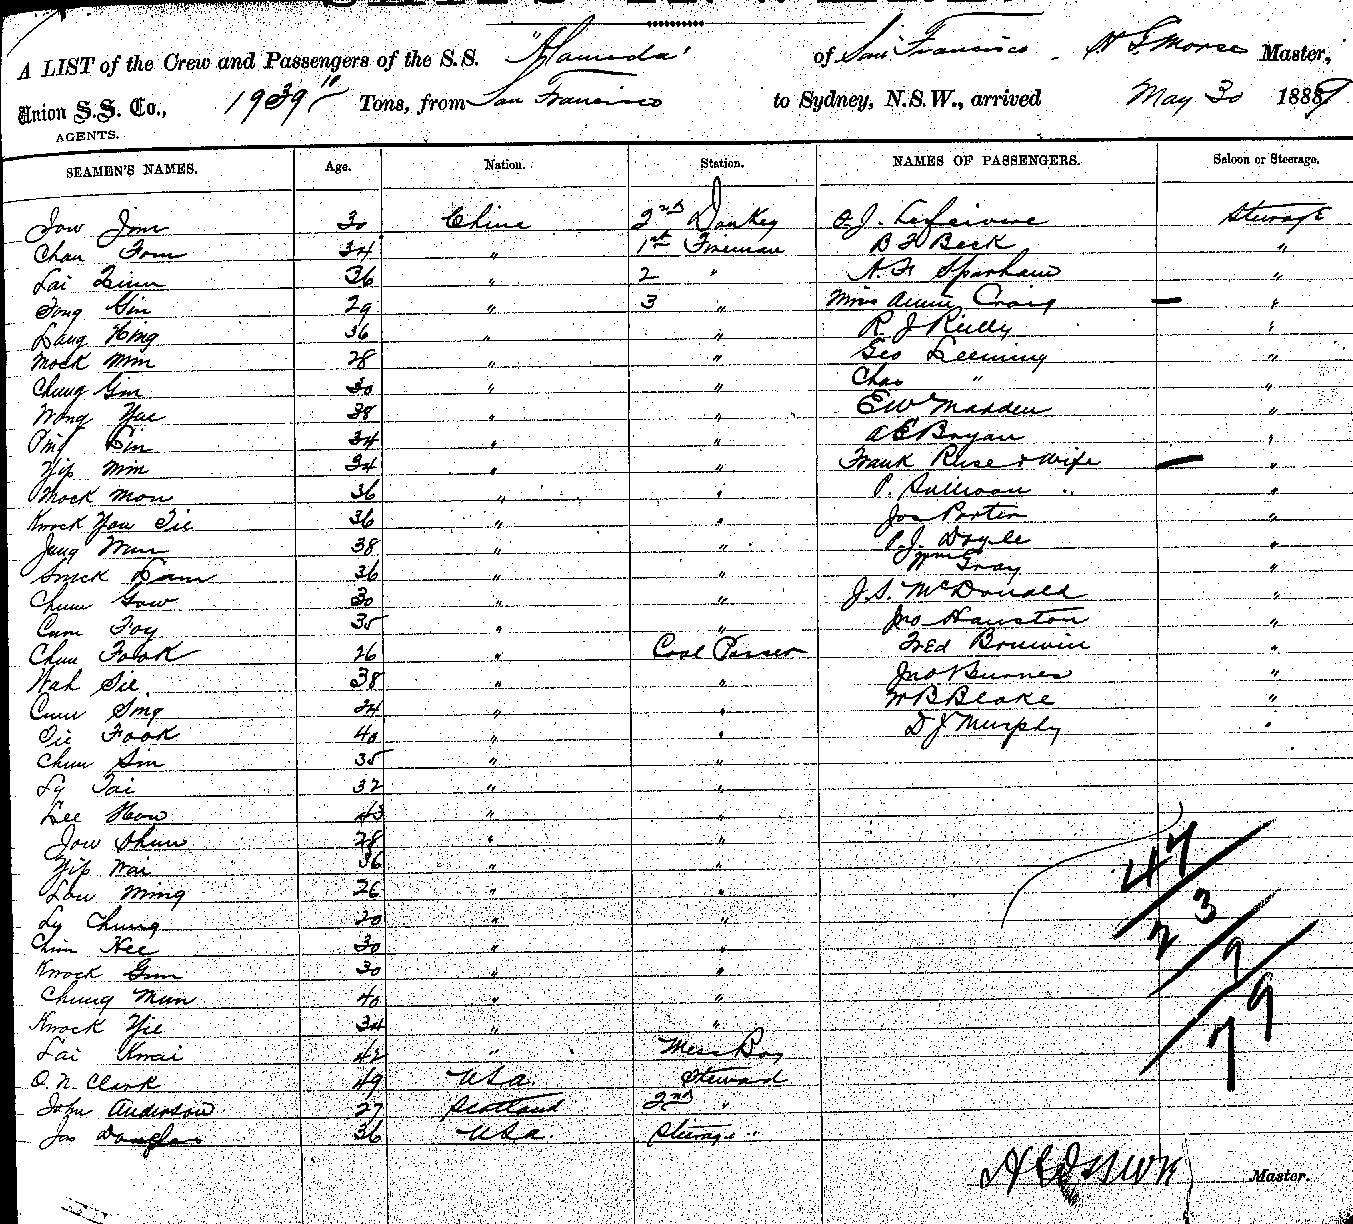 A LIST of the Crew and Passengers of the S.S. "Alameda" of San Francisco H G Morse Master,
Union S.S. Co., 1939 Tons, from San Francisco to Sydney, N.S.W., arrived May 30 1889
AGENTS.
SEAMEN'S NAMES. Age. Nation. Station. NAMES OF PASSENGERS. Saloon or Steerage.
Jow Jom 30 China 2nd Donkey Steerage
Chan Tom 34 " 1st Fireman B F Beck "
Lai 36 " 2 " "
Tong Gin 29 " 3 " Miss Annie Craig — "
Lang Hing 36 " " R J Rielly "
Mock Min 28 " " Geo Leeming "
Chung Gm 30 " " Chas " "
Wong Yue 38 " " E W Madden "
Ping 34 " " A E Bryan "
Yip Min 34 " " Frank Ruse & Wife — "
Mock Mon 36 " " P. Sullivan "
Kwock You Tie 36 " " Jos Porter "
Jung Mun 38 " " P. J. Doyle "
Lam 36 " " Wm Gray "
Chun Gow 30 " " J. S. McDonald "
Cum Foy 35 " " Jno Hauston "
Chun Fook 26 " Coal Passer Fred "
Wah Sie 38 " " Jno Burnes "
Cum Sing 34 " " W B Blake "
Tie Fook 40 " " D J Murphy "
Chun Sin 35 " "
Ly Tai 32 " "
Lee How 43 " "
Jow Shun 28 " "
Yip Wai 36 " "
Low Ming 26 " "
Ly Chung 20 " "
Chin Kee 30 " "
Kwock Gum 30 " "
Chung Mun 40 " "
Kwock Yie 34 " "
Lai Kwai 42 " Mess Boy
O. N. Clark 49 U.S.a. Steward
John Anderson 27 Scotland 2nd "
Jas Douglas 36 U.S.a. Steerage "
47
23
29
79
Master.